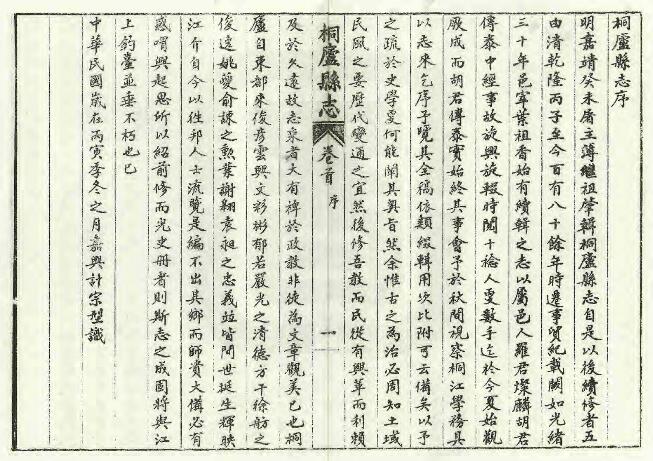 桐廬縣志序
明嘉靖癸未屠主薄繼祖肇輯桐廬縣志自是以後續修者五
由清乾隆丙子至今百有八十餘年時遷事貿紀載闕如光緒
三十年邑宰葉祖香始有續輯之志以屬邑人羅君燦麟胡君
傳泰中經事故旋興旋輟時閱十稔人更數手迄於今夏始觀
厥成而胡君傳泰實始終其事會予於秋間視察桐江學務具
以志來乞序予覽其全稿依類綴輯用次比附可云備矣以予
之疏於史學曼何能闡其奧旨然余惟古之為治必周知土域
民風之要歷代變通之宜然後修吾教而民從有興革而利賴
桐廬縣志
卷首
序
一
及於久遠故志乘者大有裨於政教非徒為文章觀美已也桐
廬自東都來俊彥雲興文彩彬郁若嚴光之清德方干徐舫之
俊逸姚夔俞諫之勳業謝翱袁昶之忠義並皆間世挺生輝映
江介自今以往邦人士流覽是編不出其鄉而師資大備必有
感喟興起思所以紹前修而光史冊者則斯志之成固將與江
上釣臺並垂不朽也已
中華民國歲在丙寅季冬之月嘉興計宗型識